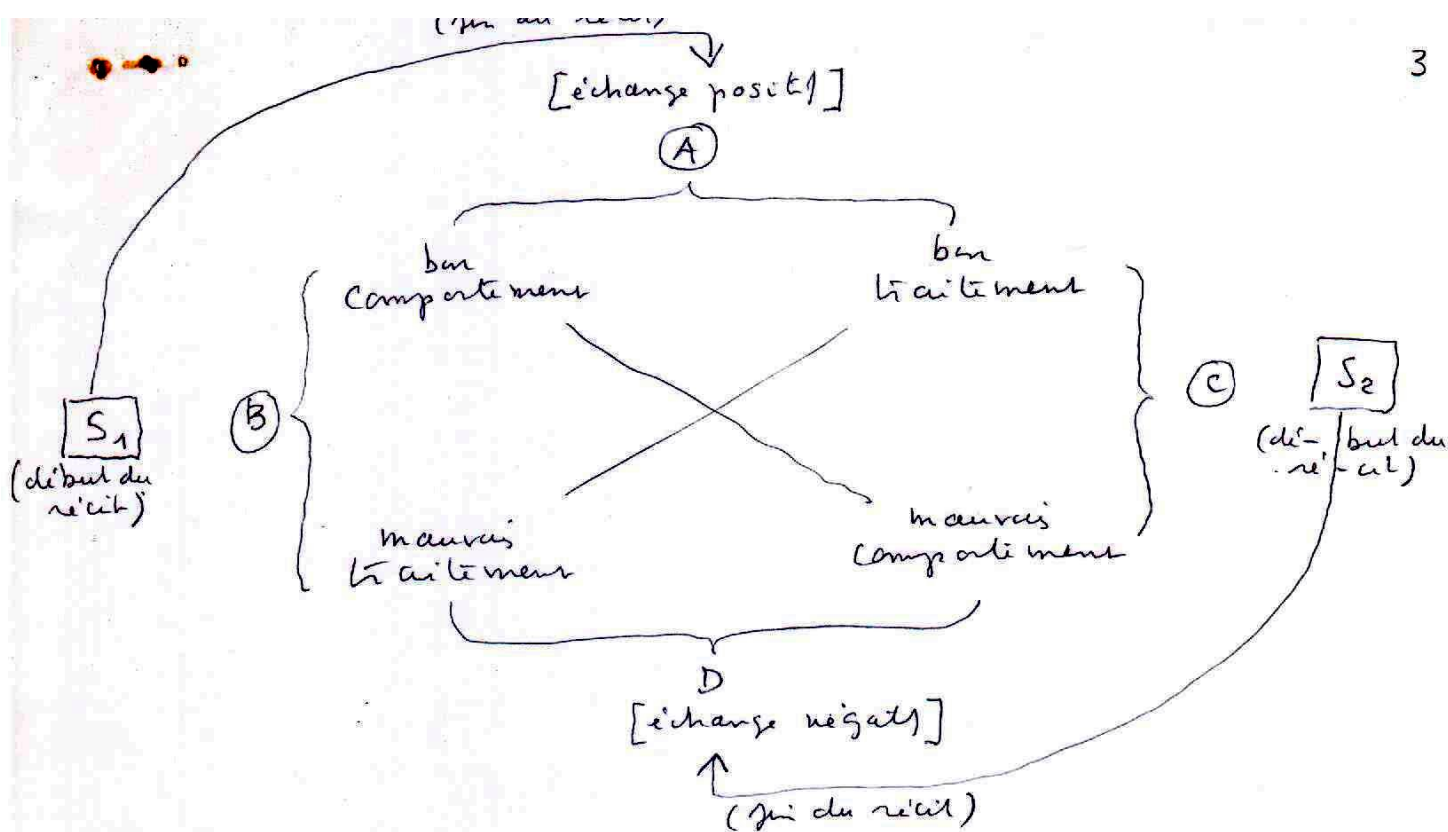 (fin du récit)
3
[échange positif]
A
bon
comportement
bon
traitement
S1
(début du
récit)
B
C
S2
(dé-but du
ré-cit)
mauvais
traitement
mauvais
comportement
D
[échange négatif]
(fin du récit)